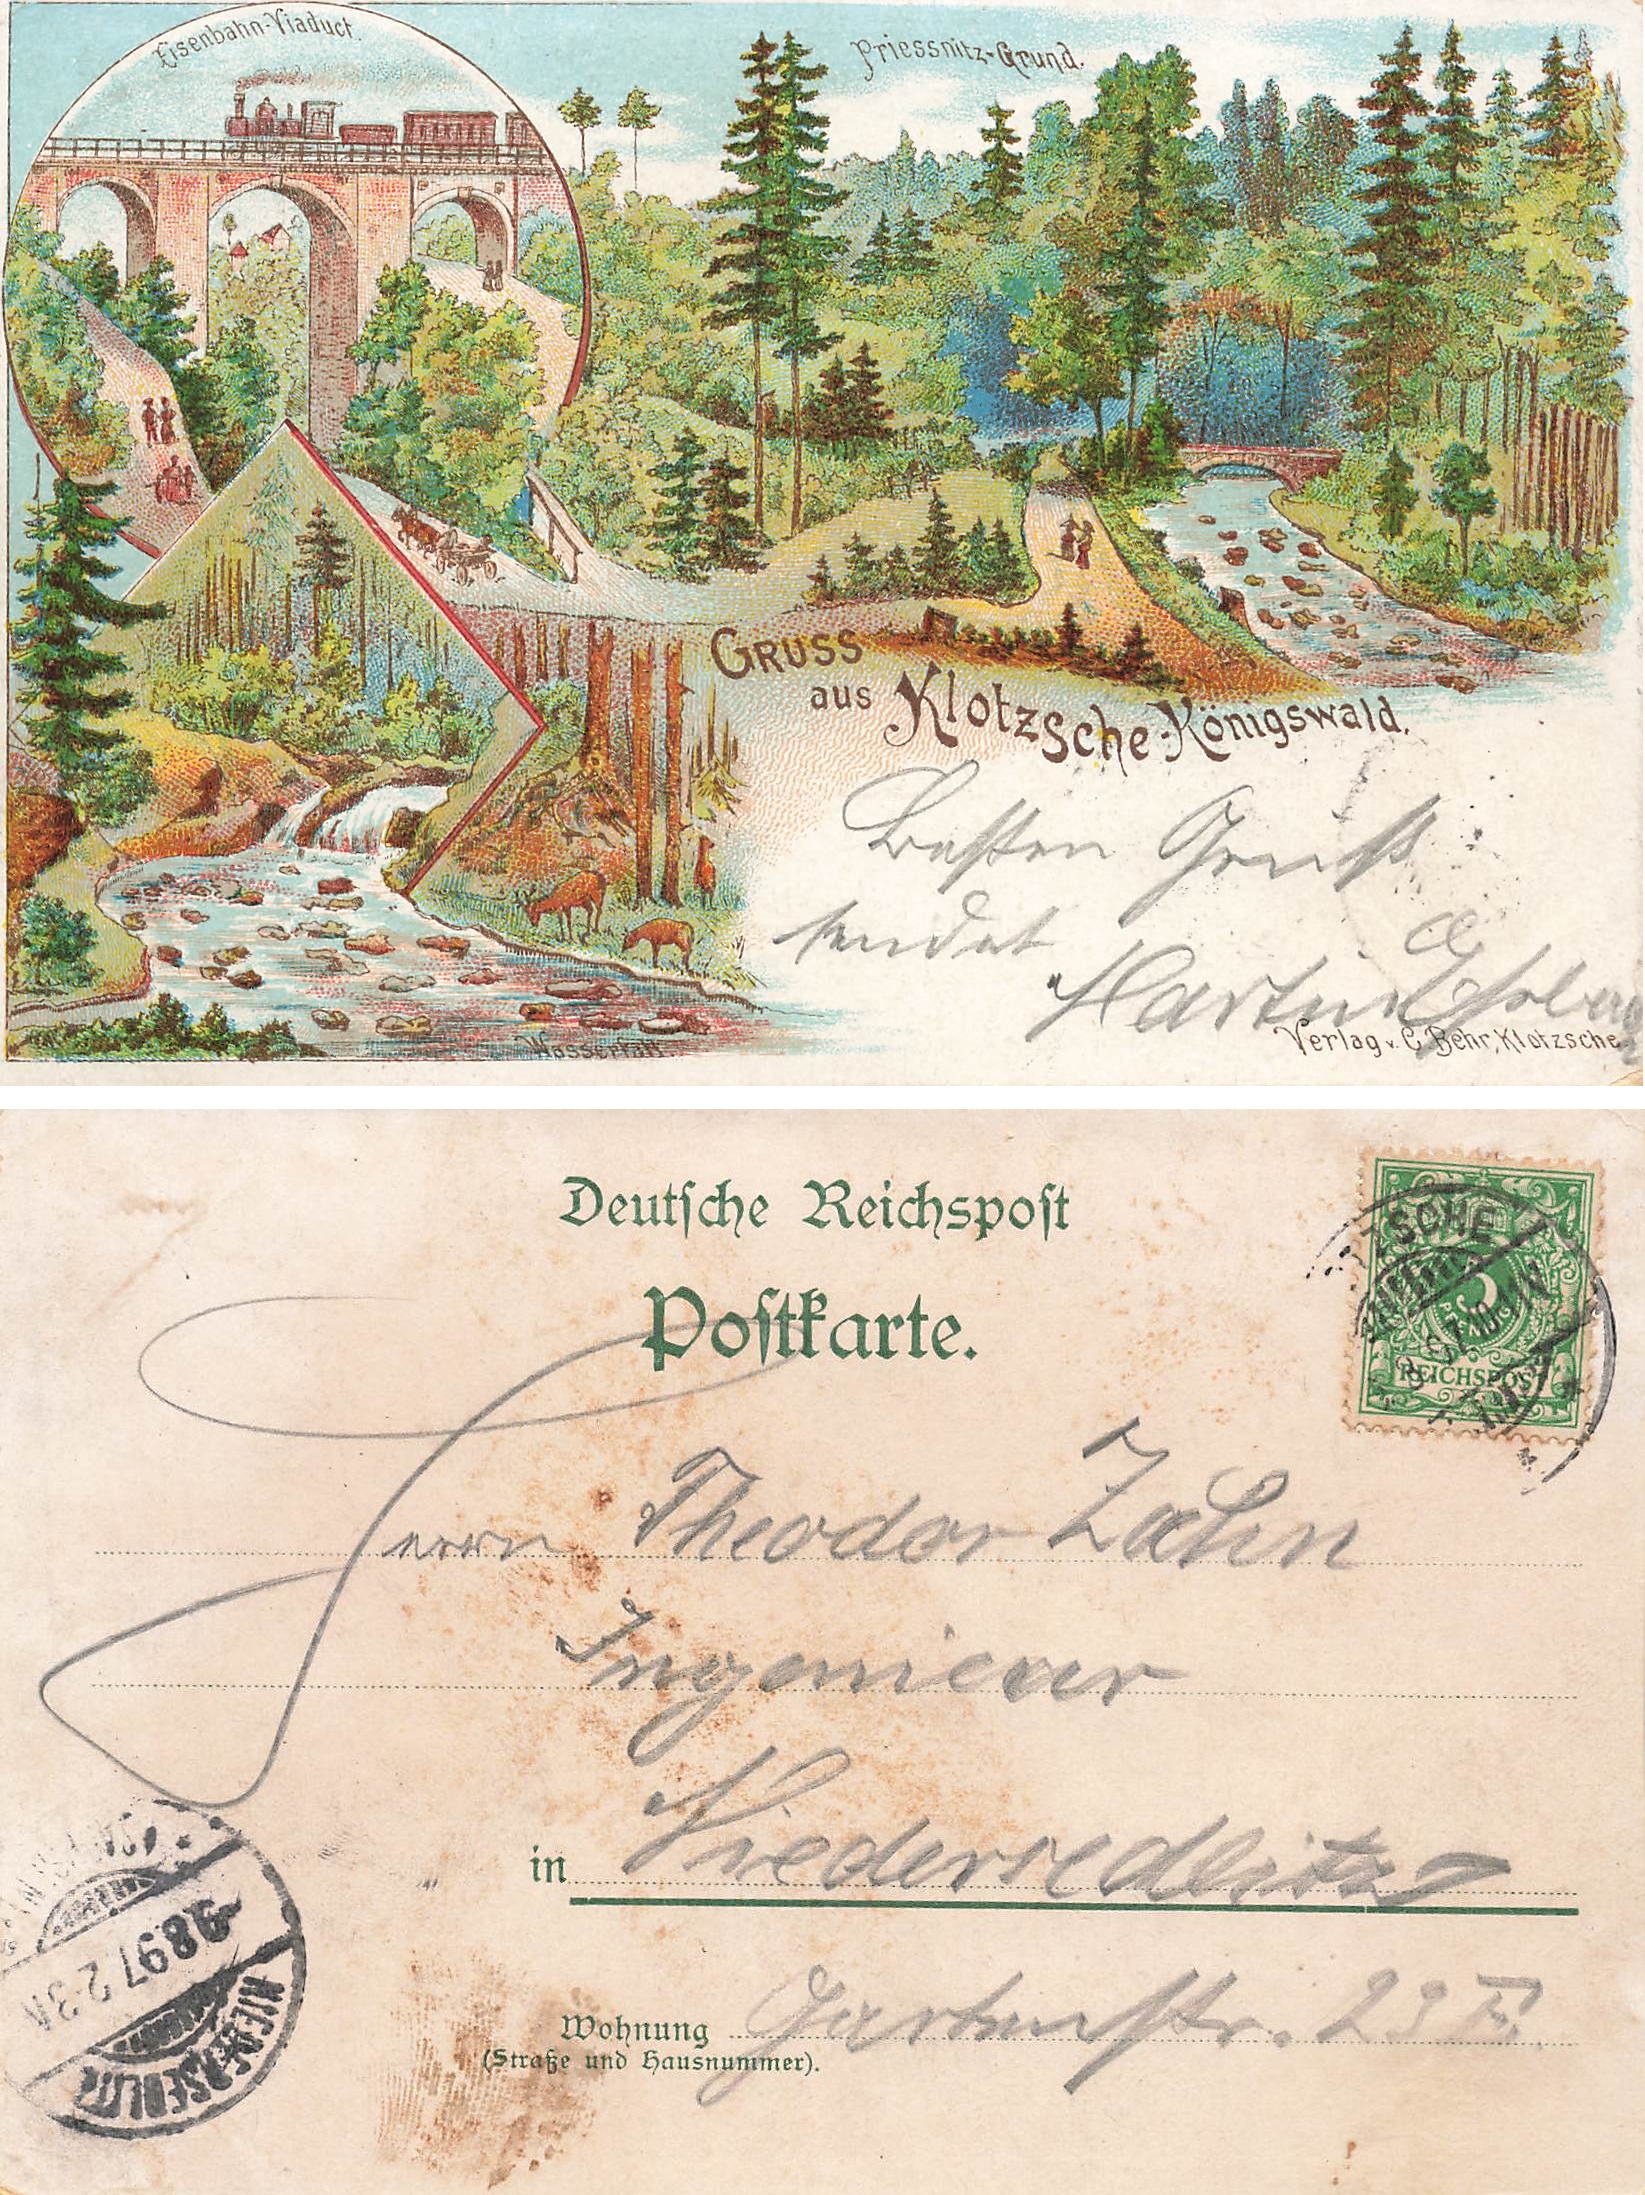 Eisenbahn-Viaduct.
Priessnitz-Grund.
Gruss
aus Klotzsche-Königswald.
Besten Gruß
sendet
Martin
Wasserfall.
Verlag v. C. Behr, Klotzsche.
Deutsche Reichspost
Postkarte.
SCHE
5
PFENNIG
REICHSPOST
Herrn Theodor Zahn
Ingenieur
in Niedersedlitz
Wohnung Gartenstr. 23 II.
(Straße und Hausnummer).
9.8.97. 2-3N
NIEDERSEDLITZ